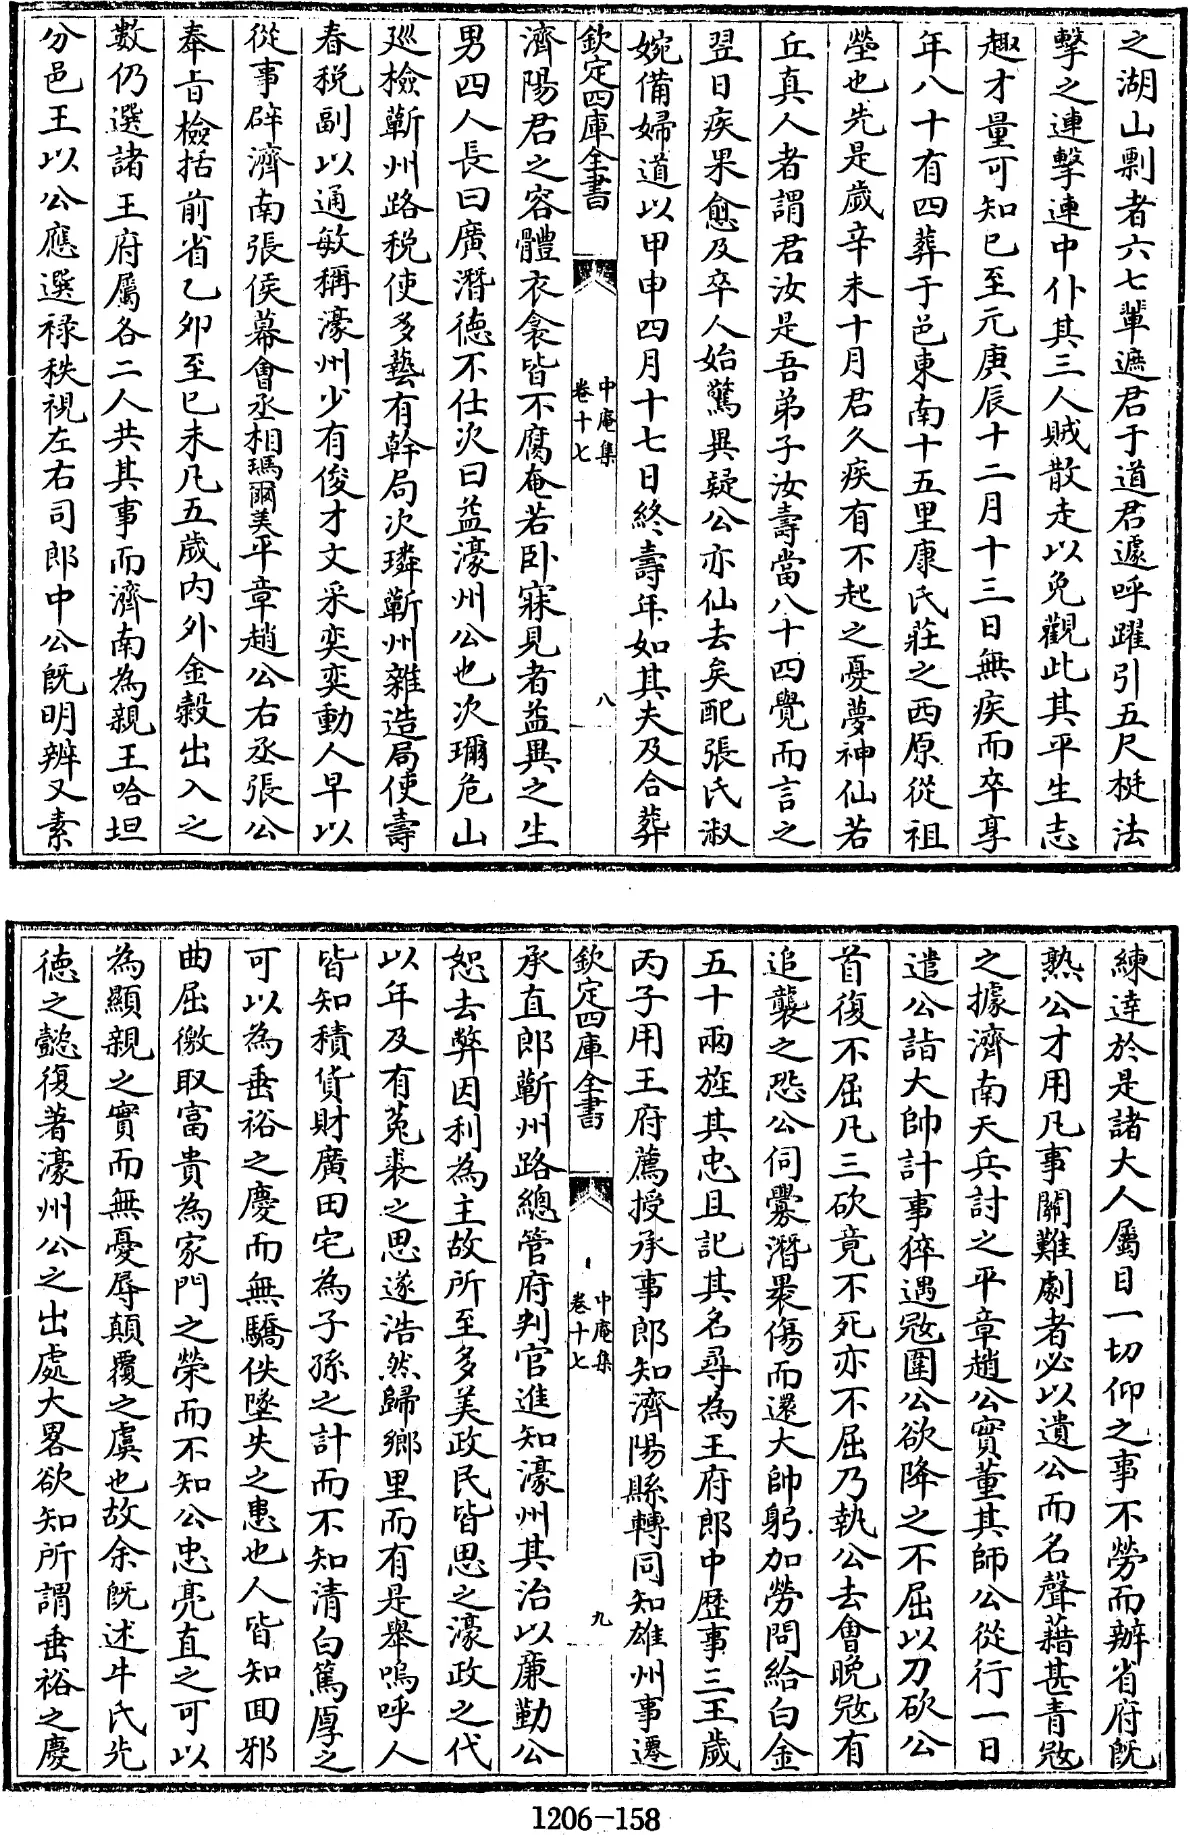 之湖山剽者六七輩遮君于道君遽呼躍引五尺梃法
擊之連擊連中仆其三人賊散走以免觀此其平生志
趣才量可知已至元庚辰十二月十三日無疾而卒享
年八十有四葬于邑東南十五里康氏莊之西原從祖
塋也先是歲辛未十月君久疾有不起之憂夢神仙若
丘真人者謂君汝是吾弟子汝壽當八十四覺而言之
翌日疾果愈及卒人始驚異疑公亦仙去矣配張氏淑
婉備婦道以甲申四月十七日終壽年如其夫及合葬
欽定四庫全書
中庵集
卷十七
八
濟陽君之容體衣衾皆不腐奄若卧寐見者益異之生
男四人長曰廣潛德不仕次曰益濠州公也次瓓危山
廵檢蘄州路税使多藝有幹局次璘蘄州雜造局使壽
春税副以通敏稱濠州少有俊才文采奕奕動人早以
從事辟濟南張侯幕會丞相瑪爾美平章趙公右丞張公
奉旨檢括前省乙夘至已未凡五歲内外金榖出入之
數仍選諸王府屬各二人共其事而濟南為親王哈坦
分邑王以公應選禄秩視左右司郎中公旣明辨又素
練達於是諸大人屬目一切仰之事不勞而辦省府旣
熟公才用凡事關難劇者必以遺公而名聲藉甚青宼
之據濟南天兵討之平章趙公實董其師公從行一日
遣公詣大帥計事猝遇宼圍公欲降之不屈以刀砍公
首復不屈凡三砍竟不死亦不屈乃執公去會晚宼有
追襲之恐公伺釁潛褁傷而還大帥躬加勞問給白金
五十兩旌其忠且記其名尋為王府郎中歴事三王歲
丙子用王府薦授承事郎知濟陽縣轉同知雄州事遷
欽定四庫全書
中庵集
卷十七
九
承直郎蘄州路總管府判官進知濠州其治以廉勤公
恕去弊因利為主故所至多美政民皆思之濠政之代
以年及有菟裘之思遂浩然歸鄉里而有是舉嗚呼人
皆知積貨財廣田宅為子孫之計而不知清白篤厚之
可以為垂裕之慶而無驕佚墜失之患也人皆知囬邪
曲屈徼取富貴為家門之榮而不知公忠亮直之可以
為顯親之實而無憂辱顛覆之虞也故余旣述牛氏先
德之懿復著濠州公之出處大畧欲知所謂垂裕之慶
1206-158